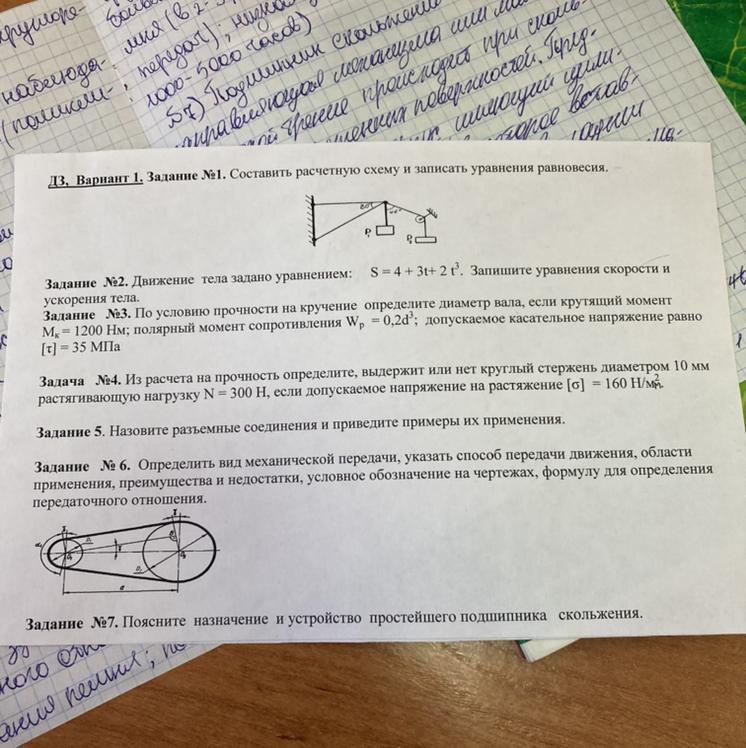 мня (в 2-
передач); низкая
1000-5000 часов)
наблюда-
№7) Подшипник скольжения
ДЗ, Вариант 1. Задание №1. Составить расчетную схему и записать уравнения равновесия.
P₁
Задание №2. Движение тела задано уравнением: S = 4 + 3t+ 2 t³. Запишите уравнения скорости и
ускорения тела.
Задание №3. По условию прочности на кручение определите диаметр вала, если крутящий момент
Мк = 1200 Нм; полярный момент сопротивления Wр = 0,2d³; допускаемое касательное напряжение равно
[τ] = 35 МПа
Задача №4. Из расчета на прочность определите, выдержит или нет круглый стержень диаметром 10 мм
растягивающую нагрузку N = 300 Н, если допускаемое напряжение на растяжение [σ] = 160 Н/мм².
Задание 5. Назовите разъемные соединения и приведите примеры их применения.
Задание № 6. Определить вид механической передачи, указать способ передачи движения, области
применения, преимущества и недостатки, условное обозначение на чертежах, формулу для определения
передаточного отношения.
a
Задание №7. Поясните назначение и устройство простейшего подшипника скольжения.